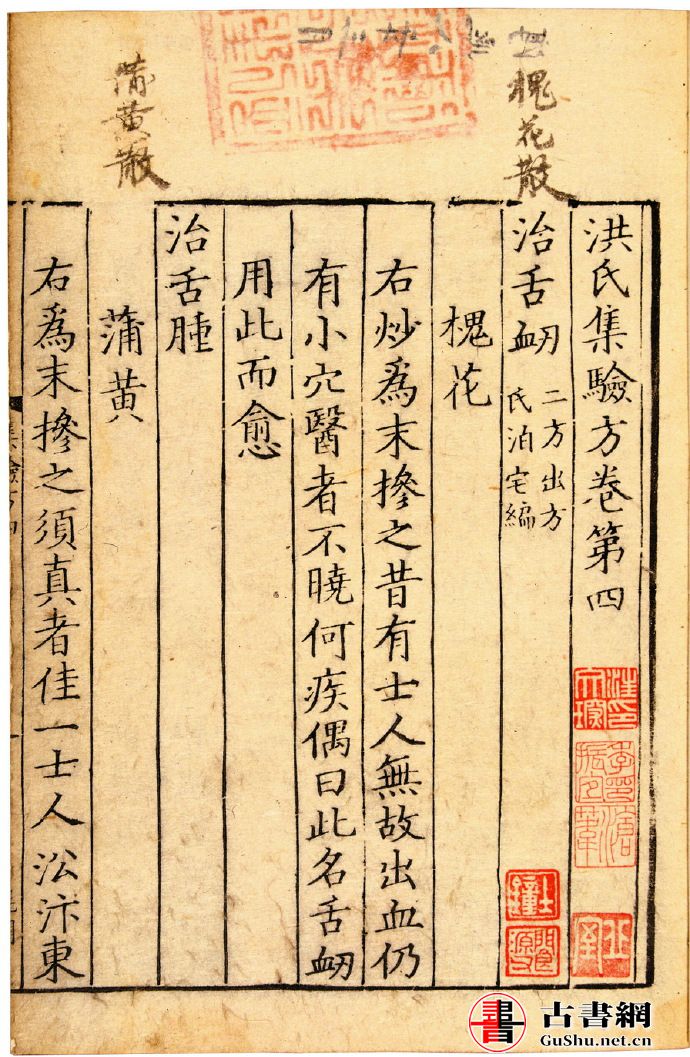 槐花散
蒲黃散
洪氏集驗方卷第四
治舌衂
二方出方
氏泊宅編
槐花
右炒爲末摻之昔有士人無故出血仍
有小穴醫者不曉何疾偶曰此名舌衂
用此而愈
治舌腫
蒲黃
右爲末摻之須真者佳一士人沿汴東
古書網
GuShu.net.cn